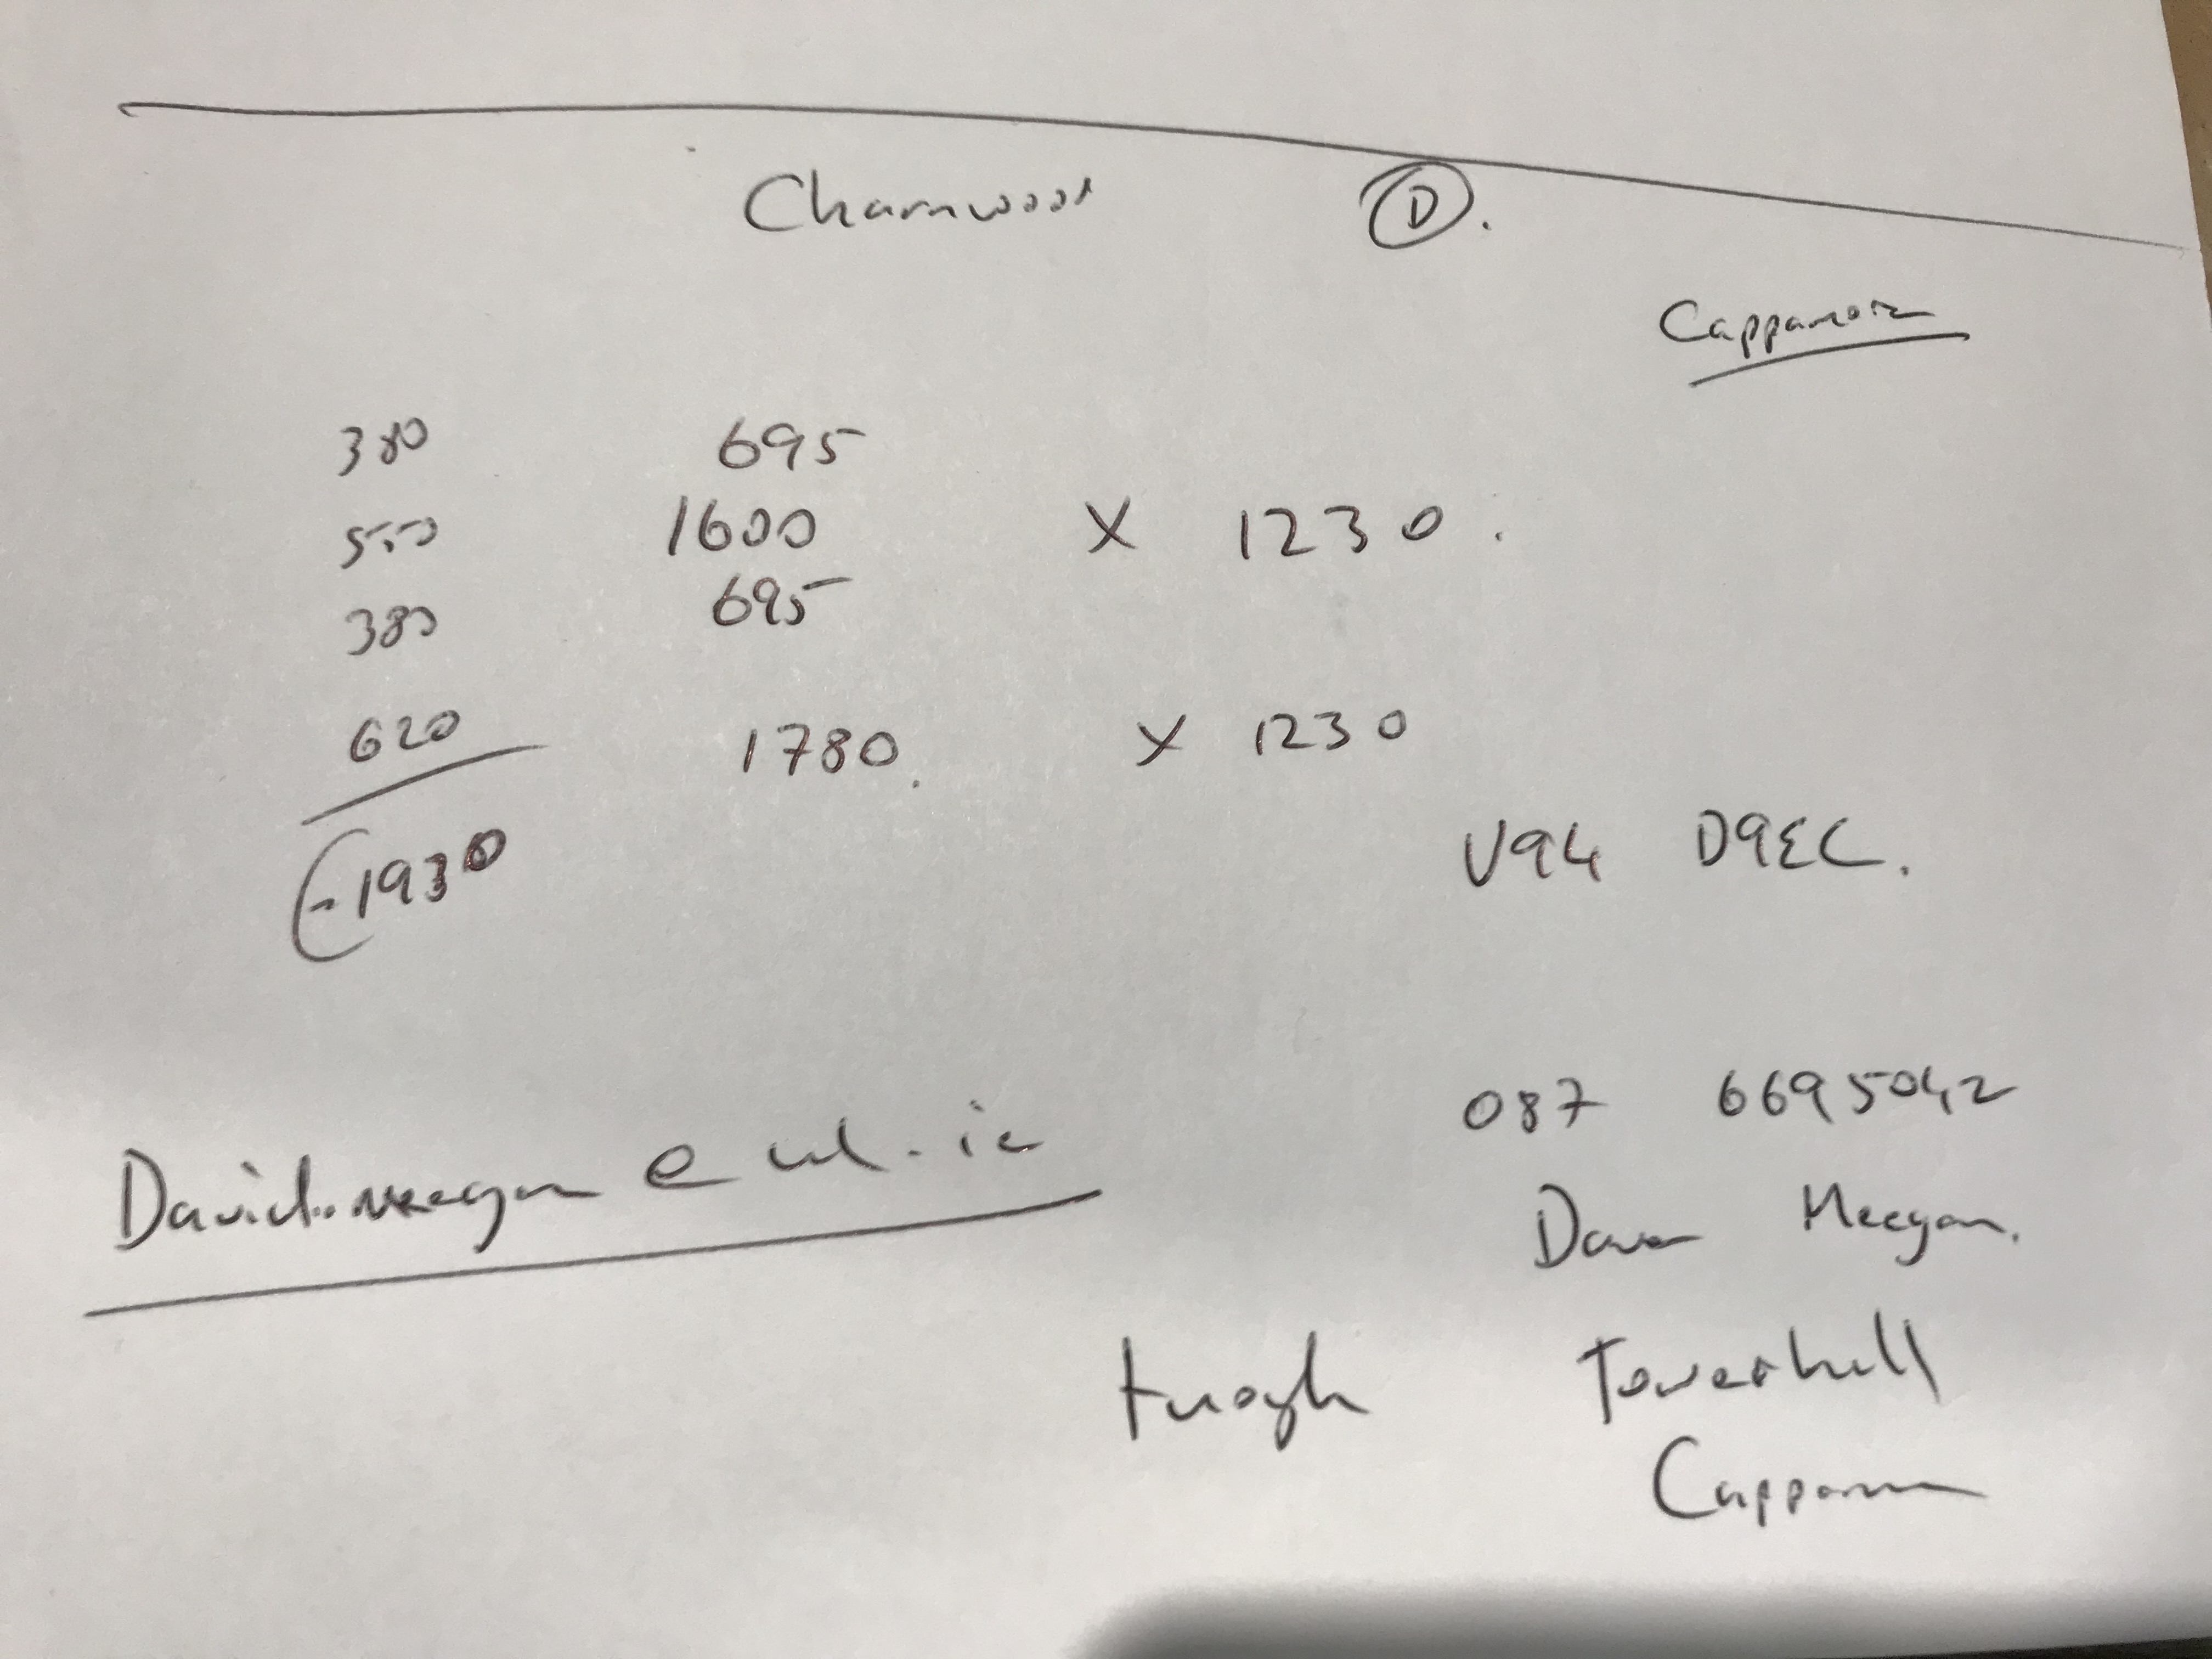 Charnwood D.
Cappamore
380 695
550 1600 X 1230.
380 695
620 1780. X 1230
-1930
V94 D9EC.
087 6695042
David.meegan@ul.ie
Meegan.
tuogh Towerhill